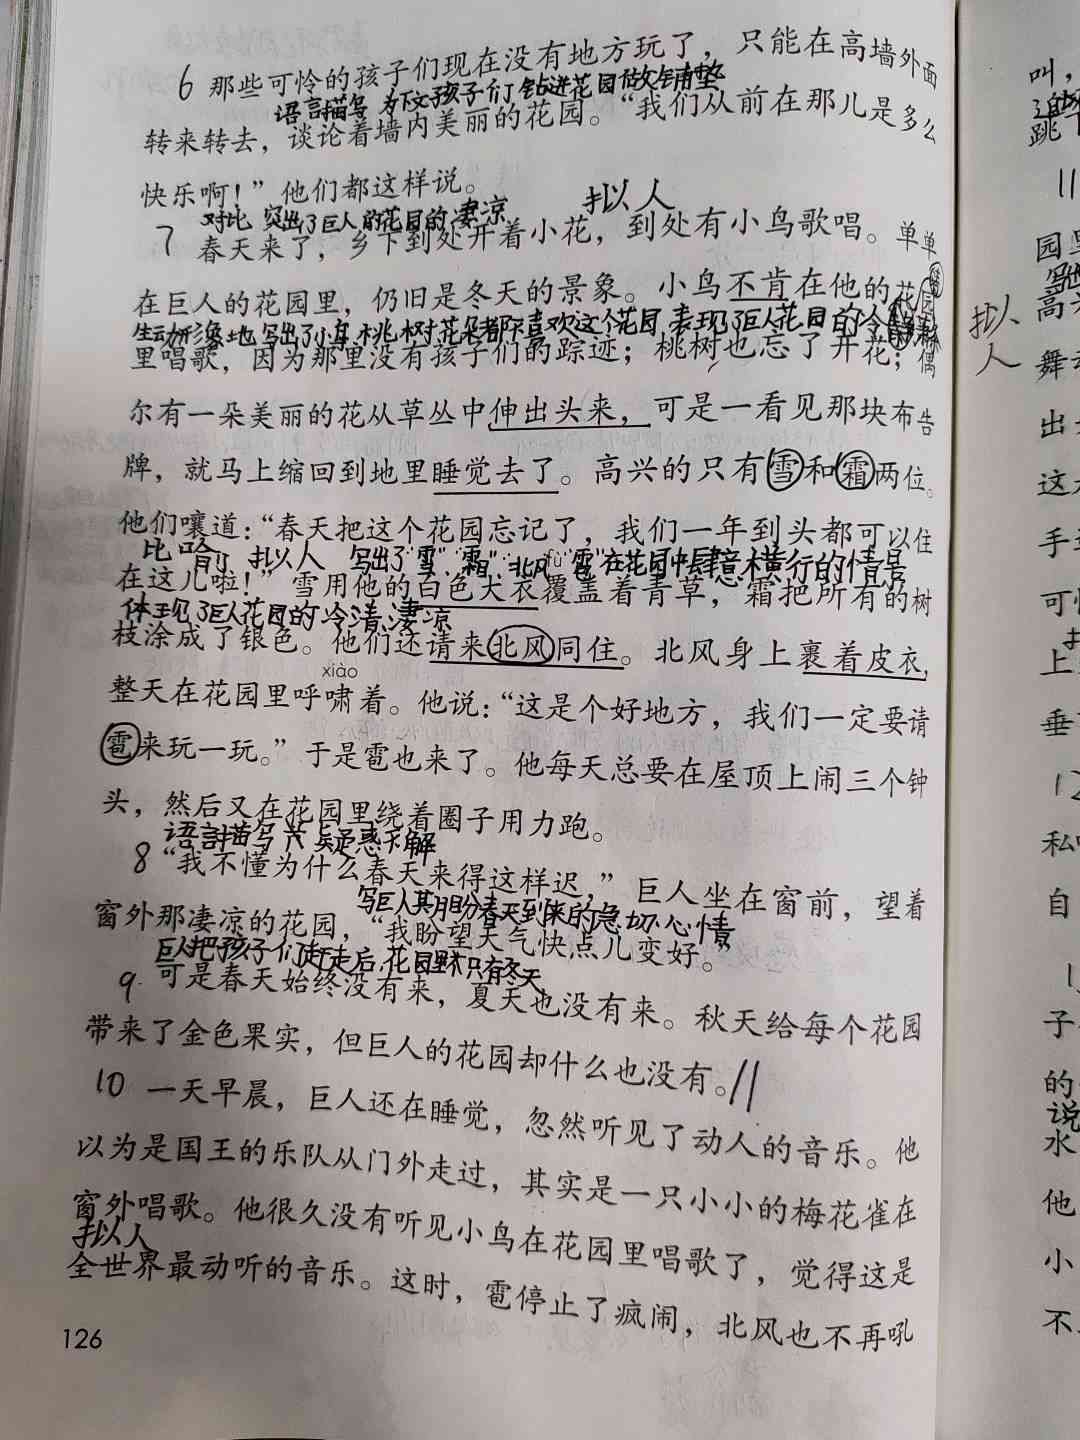 6 那些可怜的孩子们现在没有地方玩了，只能在高墙外面
语言描写 为下文孩子们钻进花园做铺垫
转来转去，谈论着墙内美丽的花园。“我们从前在那儿是多么
快乐啊！”他们都这样说。
对比 突出了巨人的花园的凄凉
拟人
7 春天来了，乡下到处开着小花，到处有小鸟歌唱。单单
在巨人的花园里，仍旧是冬天的景象。小鸟不肯在他的花园
生动形象地写出了小鸟 桃树 花朵都不喜欢这个花园，表现了巨人花园的冷清
里唱歌，因为那里没有孩子们的踪迹；桃树也忘了开花；偶
尔有一朵美丽的花从草丛中伸出头来，可是一看见那块布告
牌，就马上缩回到地里睡觉去了。高兴的只有雪和霜两位。
他们嚷道：“春天把这个花园忘记了，我们一年到头都可以住
比喻 拟人 写出了“雪”“霜”“北风”“雹”在花园中肆意横行的情景
fù
在这儿啦！”雪用他的白色大衣覆盖着青草，霜把所有的树
体现了巨人花园的冷清凄凉
枝涂成了银色。他们还请来北风同住。北风身上裹着皮衣，
xiào
整天在花园里呼啸着。他说：“这是个好地方，我们一定要请
雹来玩一玩。”于是雹也来了。他每天总要在屋顶上闹三个钟
头，然后又在花园里绕着圈子用力跑。
语言描写 疑惑不解
8 “我不懂为什么春天来得这样迟，”巨人坐在窗前，望着
写巨人期盼春天到来的急切心情
窗外那凄凉的花园，“我盼望天气快点儿变好。”
巨人把孩子们赶走后，花园里只有冬天
9 可是春天始终没有来，夏天也没有来。秋天给每个花园
带来了金色果实，但巨人的花园却什么也没有。//
10 一天早晨，巨人还在睡觉，忽然听见了动人的音乐。他
以为是国王的乐队从门外走过，其实是一只小小的梅花雀在
窗外唱歌。他很久没有听见小鸟在花园里唱歌了，觉得这是
拟人
全世界最动听的音乐。这时，雹停止了疯闹，北风也不再吼
126
叫，
跳
11
园里
高兴
拟人
人
舞
出
这
手
可
上
垂
12
私
自
子
的
说
水
他
小
不